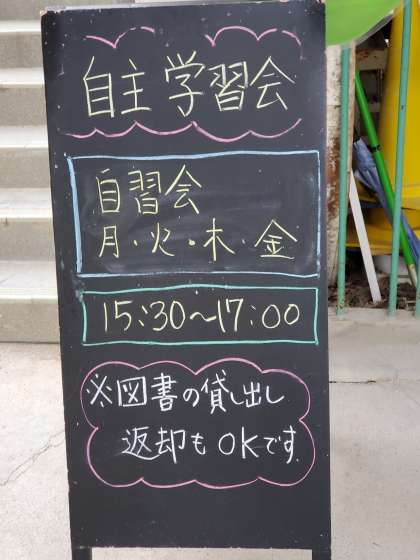 自主学習会
自習会
月・火・木・金
15:30～17:00
※図書の貸し出し
返却もOKです